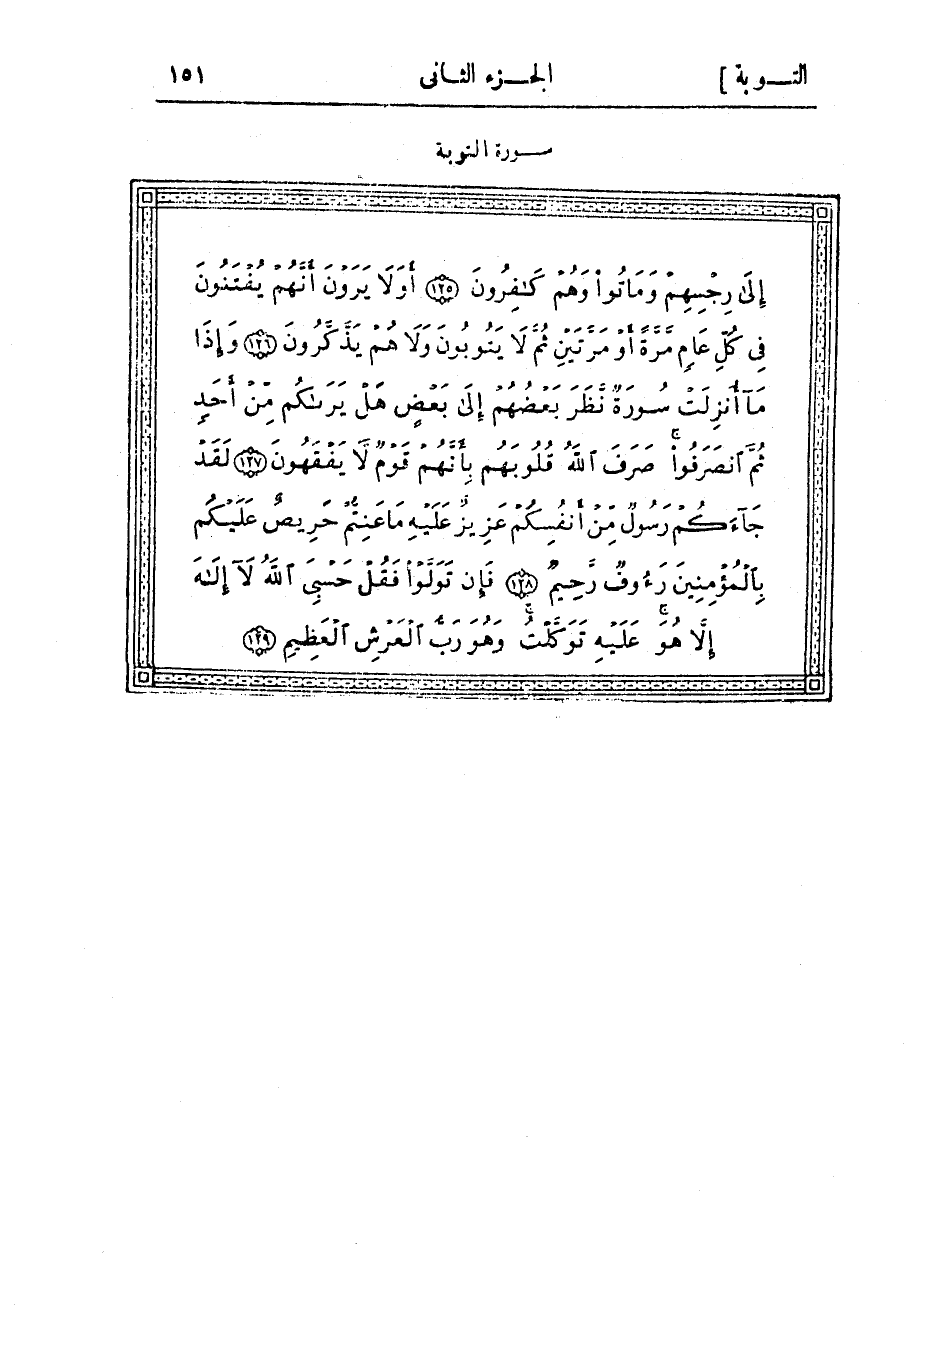 التـــوبة ]    الجـــزء الثـانى    ١٥١
ســورة التوبة
إِلَىٰ رِجْسِهِمْ وَمَاتُوا۟ وَهُمْ كَـٰفِرُونَ ۝١٢٥ أَوَلَا يَرَوْنَ أَنَّهُمْ يُفْتَنُونَ
فِى كُلِّ عَامٍ مَّرَّةً أَوْ مَرَّتَيْنِ ثُمَّ لَا يَتُوبُونَ وَلَا هُمْ يَذَّكَّرُونَ ۝١٢٦ وَإِذَا
مَآ أُنزِلَتْ سُورَةٌ نَّظَرَ بَعْضُهُمْ إِلَىٰ بَعْضٍ هَلْ يَرَىٰكُم مِّنْ أَحَدٍ
ثُمَّ ٱنصَرَفُوا۟ ۚ صَرَفَ ٱللَّهُ قُلُوبَهُم بِأَنَّهُمْ قَوْمٌ لَّا يَفْقَهُونَ ۝١٢٧ لَقَدْ
جَآءَكُمْ رَسُولٌ مِّنْ أَنفُسِكُمْ عَزِيزٌ عَلَيْهِ مَا عَنِتُّمْ حَرِيصٌ عَلَيْكُم
بِٱلْمُؤْمِنِينَ رَءُوفٌ رَّحِيمٌ ۝١٢٨ فَإِن تَوَلَّوْا۟ فَقُلْ حَسْبِىَ ٱللَّهُ لَآ إِلَـٰهَ
إِلَّا هُوَ ۖ عَلَيْهِ تَوَكَّلْتُ ۖ وَهُوَ رَبُّ ٱلْعَرْشِ ٱلْعَظِيمِ ۝١٢٩